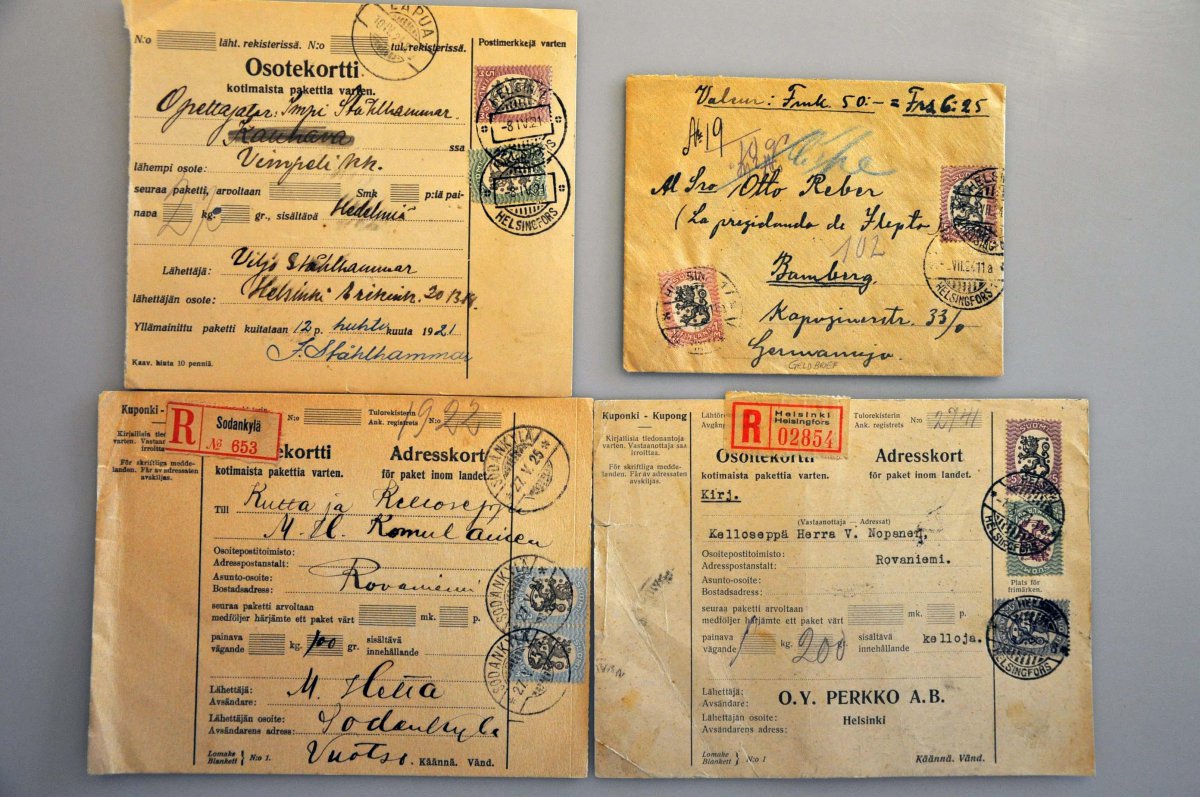 LAPUA
N:o läht. rekisterissä. N:o tul. rekisterissä.
Postimerkkejä varten
Osotekortti
kotimaista pakettia varten.
Impi Ståhlhammar
Kauhava
ssa
lähempi osote: Vimpeli kk.
seuraa paketti, arvoltaan Smk p:lä pai-
nava kg. gr., sisältävä Hedelmiä
Lähettäjä: Viljo Ståhlhammar
lähettäjän osote: Helsinki
Yllämainittu paketti kuitataan 12 p. huhti kuuta 1921
Ståhlhammar
Kaav. hinta 10 penniä.
HELSINKI
-8.IV.21
HELSINGFORS
Valeur: Fmk 50:- = Frs 6:25
№ 19
Al Sro Otto Reber
(La prezidando de Ilepto
102
Bamberg
Kapuzinerstr. 33/0
Germanujo.
GELDBRIEF
HELSINGFORS
Kuponki - Kupong
R Sodankylä
№ 653
N:o
Tulorekisterin
Ank. registrets
N:o
1922
Kirjallisia tiedonantoja
varten.
För skriftliga medde-
landen. Får av adressaten
avskiljas.
Adresskort
kotimaista pakettia varten. för paket inom landet.
Till Kutta ja Kelloseppä
M. H. Komulainen
Osoitepostitoimisto:
Adresspostanstalt:
Rovaniemi
Asunto-osoite:
Bostadsadress:
seuraa paketti arvoltaan mk. p.
medföljer härjämte ett paket värt
painava kg. 100 gr. sisältävä
vägande innehållande
Lähettäjä: M. Hetta
Avsändare:
Lähettäjän osoite: Sodankylä
Avsändarens adress:
Vuotso.
Lomake
Blankett N:o 1. Käännä. Vänd.
SODANKYLÄ
27.V.25
SODANKYLÄ
SODANKYLÄ
Kuponki - Kupong
R Helsinki
Helsingfors
02854
Tulorekisterin
Ank. registrets
N:o
2741
Kirjallisia tiedonantoja
varten. Vastaanottaja saa
irroittaa.
För skriftliga medde-
landen. Får av adressaten
avskiljas.
Osoitekortti Adresskort
kotimaista pakettia varten. för paket inom landet.
Kirj.
(Vastaanottaja — Adressat)
Kelloseppä Herra V. Nopanen,
Osoitepostitoimisto:
Adresspostanstalt:
Rovaniemi.
Asunto-osoite:
Bostadsadress:
Plats för
frimärken.
seuraa paketti arvoltaan mk. p.
medföljer härjämte ett paket värt
painava kg. 200 sisältävä kelloja.
vägande innehållande
Lähettäjä:
Avsändare:
O.Y. PERKKO A.B.
Lähettäjän osoite:
Avsändarens adress:
Helsinki
Lomake
Blankett N:o 1 Käännä. Vänd.
SUOMI
HELSINGFORS
HELSINKI
HELSINGFORS